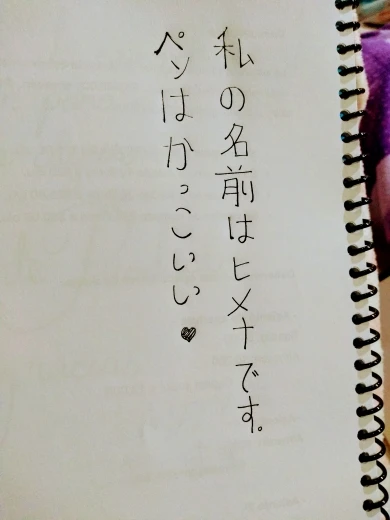 私の名前はヒメナです。
ペンはかっこいい♥